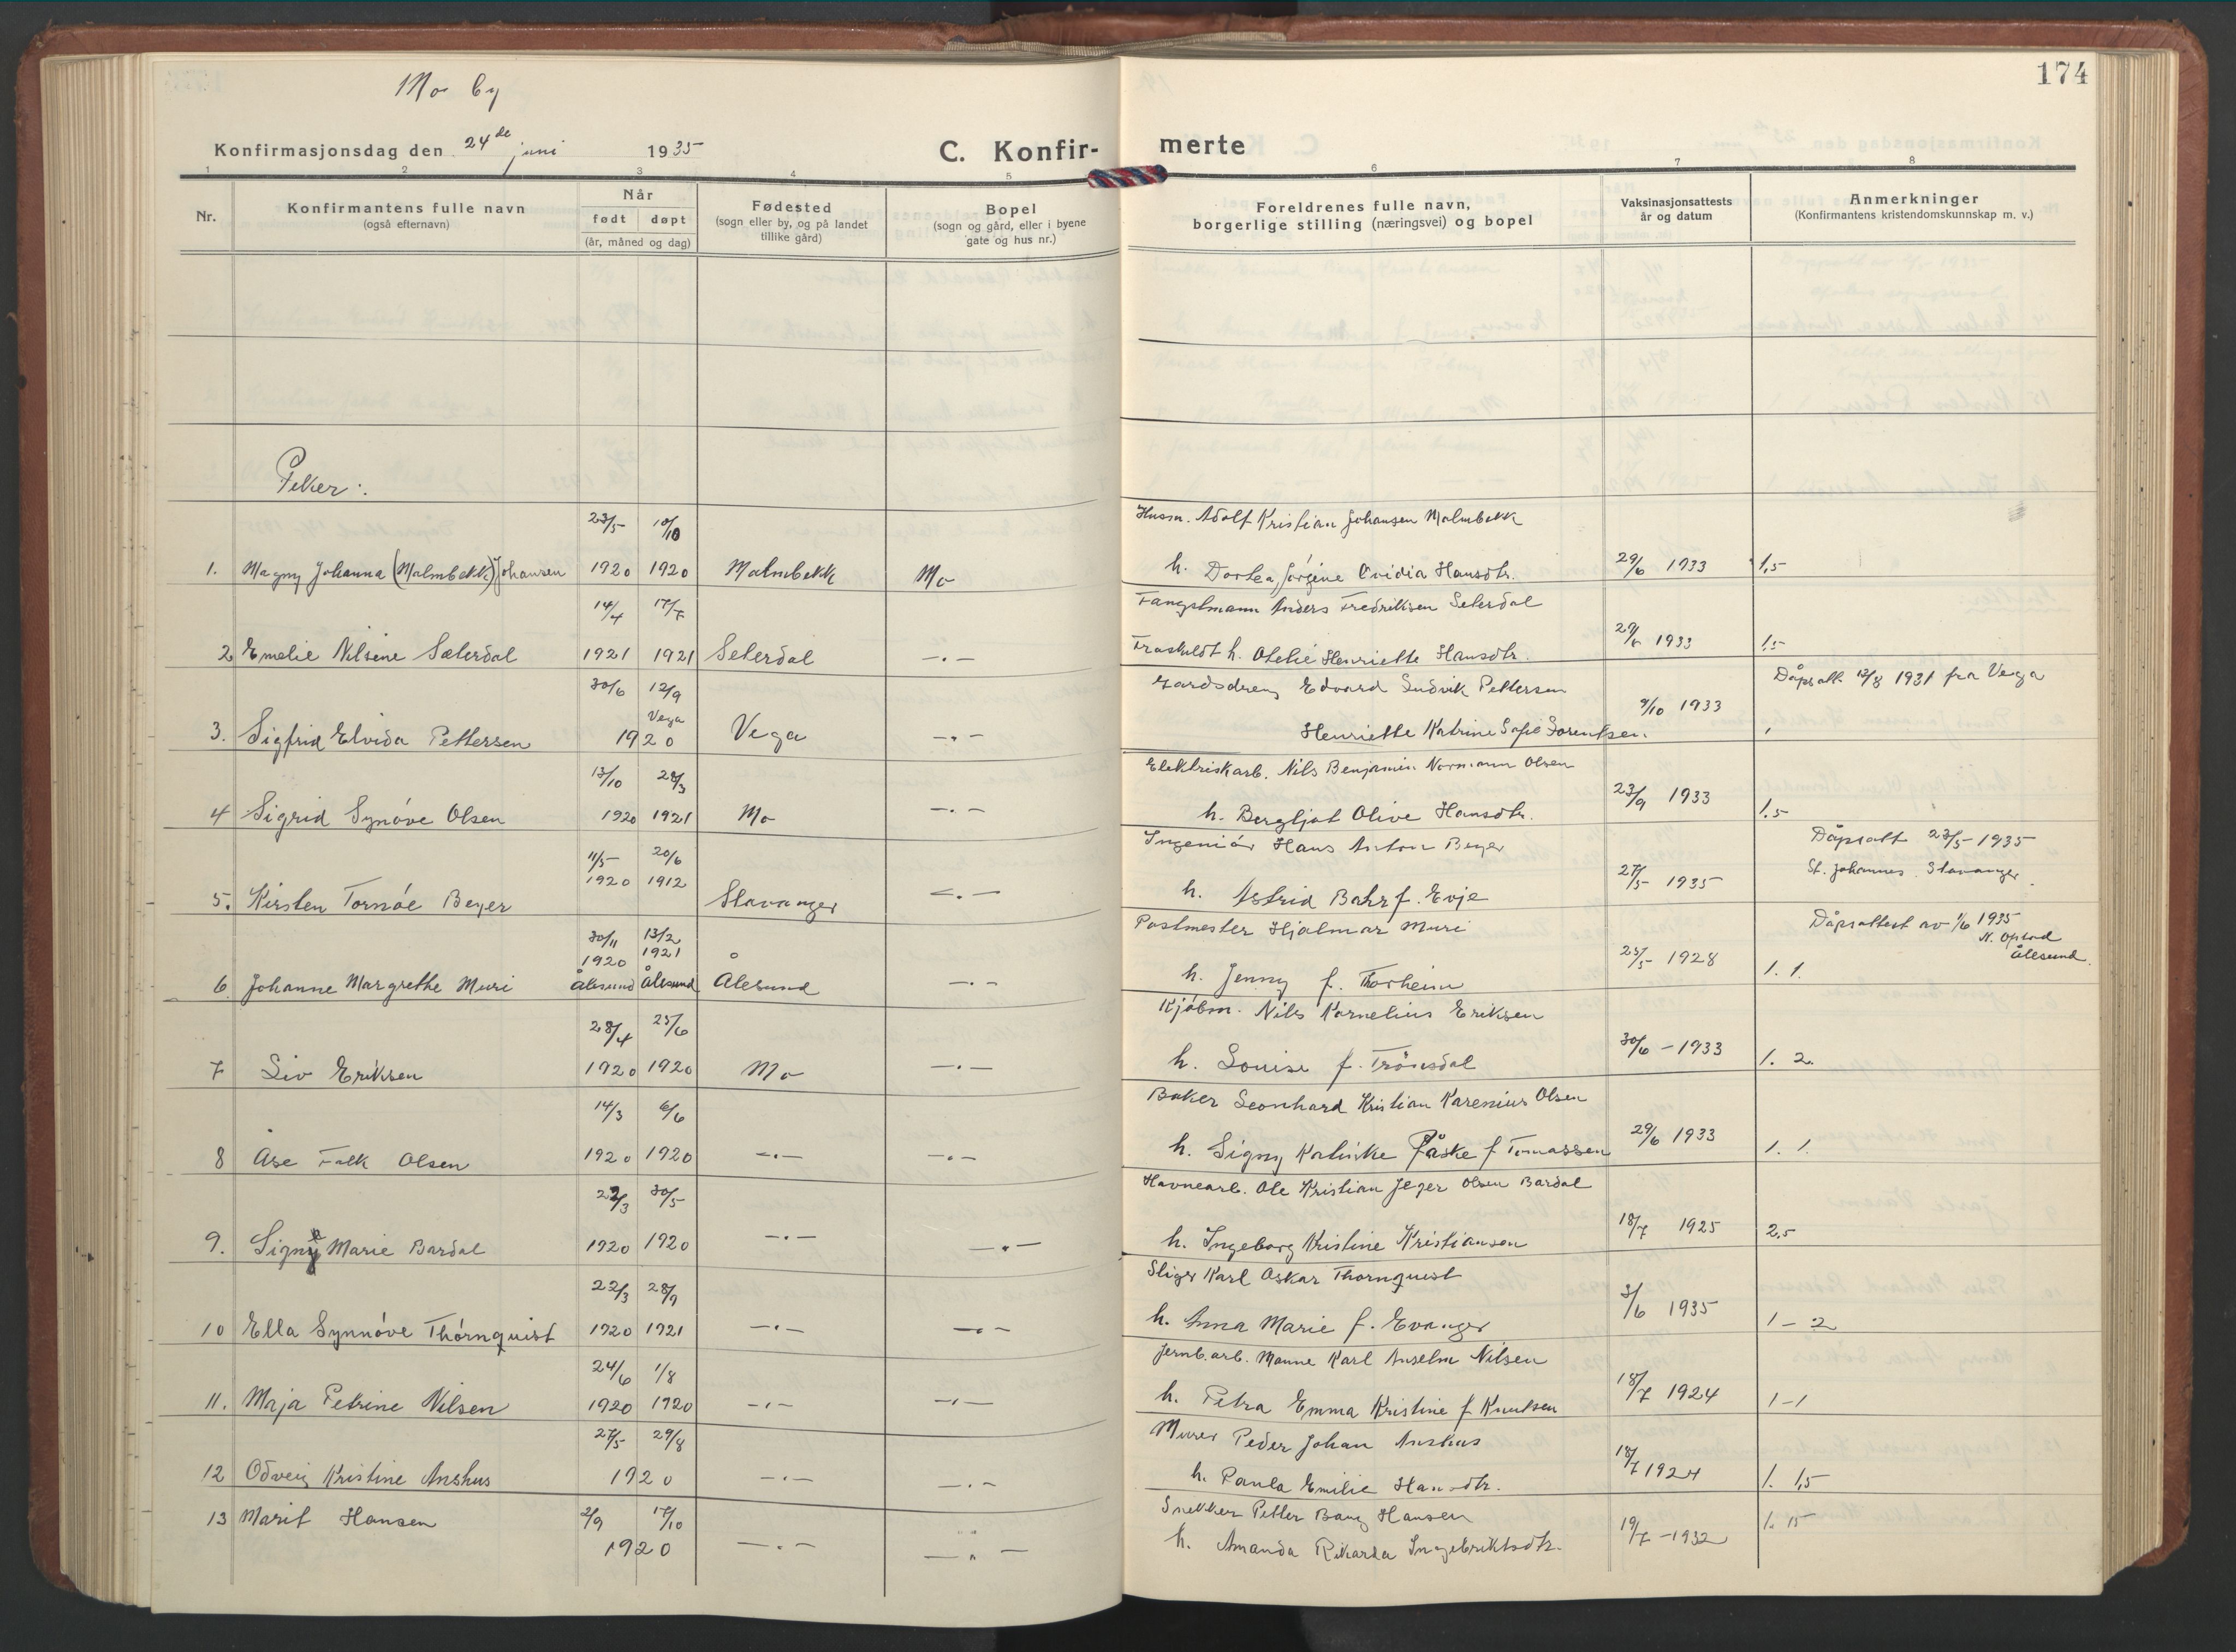 174
Mo by
Konfirmasjonsdag den 24de juni 1935
C. Konfir- merte
1 2 3 4 5 6 7 8
Nr.
Konfirmantens fulle navn
(også efternavn)
Når
født døpt
(år, måned og dag)
Fødested
(sogn eller by, og på landet
tillike gård)
Bopel
(sogn og gård, eller i byene
gate og hus nr.)
Foreldrenes fulle navn,
borgerlige stilling (næringsvei) og bopel
Vaksinasjonsattests
år og datum
Anmerkninger
(Konfirmantens kristendomskunnskap m. v.)
Piker:
23/5 10/10 Husm. Adolf Kristian Johansen Malmbekk
1. Magny Johanna (Malmbekk) Johansen 1920 1920 Malmbekk Mo h. Dortea Jørgine Ovidia Hansdtr. 29/6 1933 1,5
14/4 17/7 Fangstmann Anders Fredriksen Seterdal
2 Emelie Nilsine Sæterdal 1921 1921 Seterdal -.- Fraskildt h. Otelie Henriette Hansdtr. 29/6 1933 1,5
30/6 12/9 Gardsdreng Edvard Ludvik Pettersen Dåpsatt. 12/8 1931 fra Vega
Vega 9/10 1933
3. Sigfrid Elvida Pettersen 1920 Vega -.- Henriette Katrine Sofie Sørentsen.
13/10 28/3 Elektriskarb. Nils Benjamin Normann Olsen
4 Sigrid Synøve Olsen 1920 1921 Mo -.- h. Bergljot Olive Hansdtr. 23/9 1933 1,5
11/5 20/6 Ingeniør Hans Anton Beyer Dåpsatt 23/5-1935
1920 1912 27/5 1935 St. Johannes Stavanger.
5. Kirsten Tornøe Beyer Stavanger -.- h. Astrid Bahr f. Evje
30/11 13/2 Postmester Hjalmar Muri Dåpsattest av 1/6 1935
1920 1921 25/5 1928 Ålesund.
6. Johanne Margrethe Muri Ålesund Ålesund Ålesund -.- h. Jenny f. Thorheim 1. 1.
28/4 25/6 Kjøbm. Nils Kornelius Eriksen
7 Liv Eriksen 1920 1920 Mo -.- h. Louise f. Trönsdal 30/6-1933 1. 2.
14/3 6/6 Baker Leonhard Kristian Karenius Olsen
8 Åse Falk Olsen 1920 1920 -.- -.- h. Signy Katinke Påske f Tomassen 29/6 1933 1. 1.
22/3 30/5 Havnearb. Ole Kristian Jeger Olsen Bardal
9. Signe Marie Bardal 1920 1920 -.- -.- h. Ingeborg Kristine Kristiansen 18/7 1925 2,5
22/3 28/9 Stiger Karl Oskar Thornquist
10 Ella Synnøve Thørnquist 1920 1921 -.- -.- h. Anna Marie f. Evanger 3/6 1935 1-2
24/6 1/8 Jernb.arb. Manne Karl Anselm Nilsen
11. Maja Petrine Nilsen 1920 1920 -.- -.- h. Petra Emma Kristine f Knutsen 18/7 1924 1-1
27/5 29/8 Murer Peder Johan Anshus
12 Odveig Kristine Anshus 1920 -.- -.- h. Paula Emilie Hansdtr. 18/7 1924 1. 1,5
13 Marit Hansen 2/9 17/10 Snekker Petter Bang Hansen 1. 15
1920 -.- -.- h. Amanda Rikarda Ingebriktsdtr. 19/7-1932